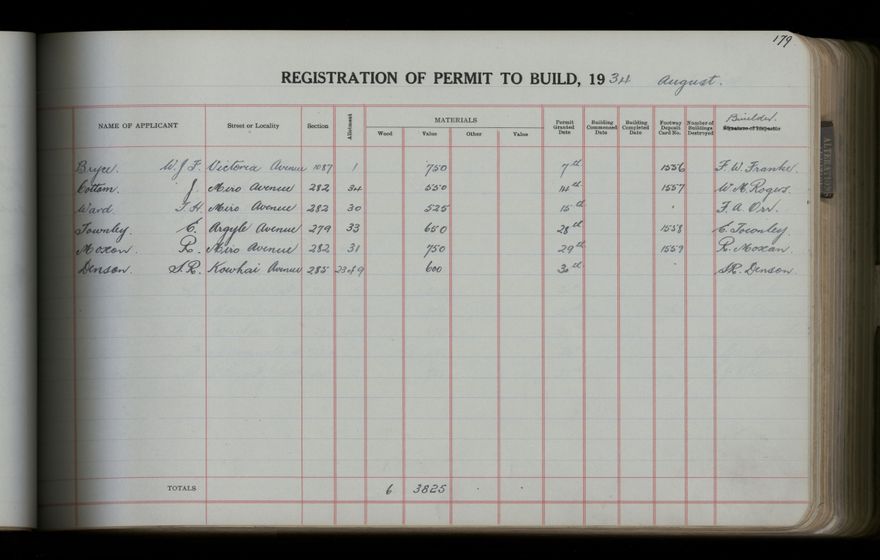 179
REGISTRATION OF PERMIT TO BUILD, 1934 August.
NAME OF APPLICANT Street or Locality Section Allotment MATERIALS Wood Value Other Value Permit Granted Date Building Commenced Date Building Completed Date Footway Deposit Card No. Number of Buildings Destroyed Builder.
Bryce. W. J. F. Victoria Avenue 1087 1 750 7th 1556 F. W. Franke.
Cottam. J. Miro Avenue 282 34 550 14th 1557 W. A. Rogers.
Ward. T. H. Miro Avenue 282 30 525 15th F. A. Orr.
Townley. E. Argyle Avenue 279 33 650 28th 1558 E. Townley.
Moxan. R. Miro Avenue 282 31 750 29th 1559 R. Moxan.
Denson. S. R. Kowhai Avenue 285 600 30th S. R. Denson.
TOTALS 6 3825